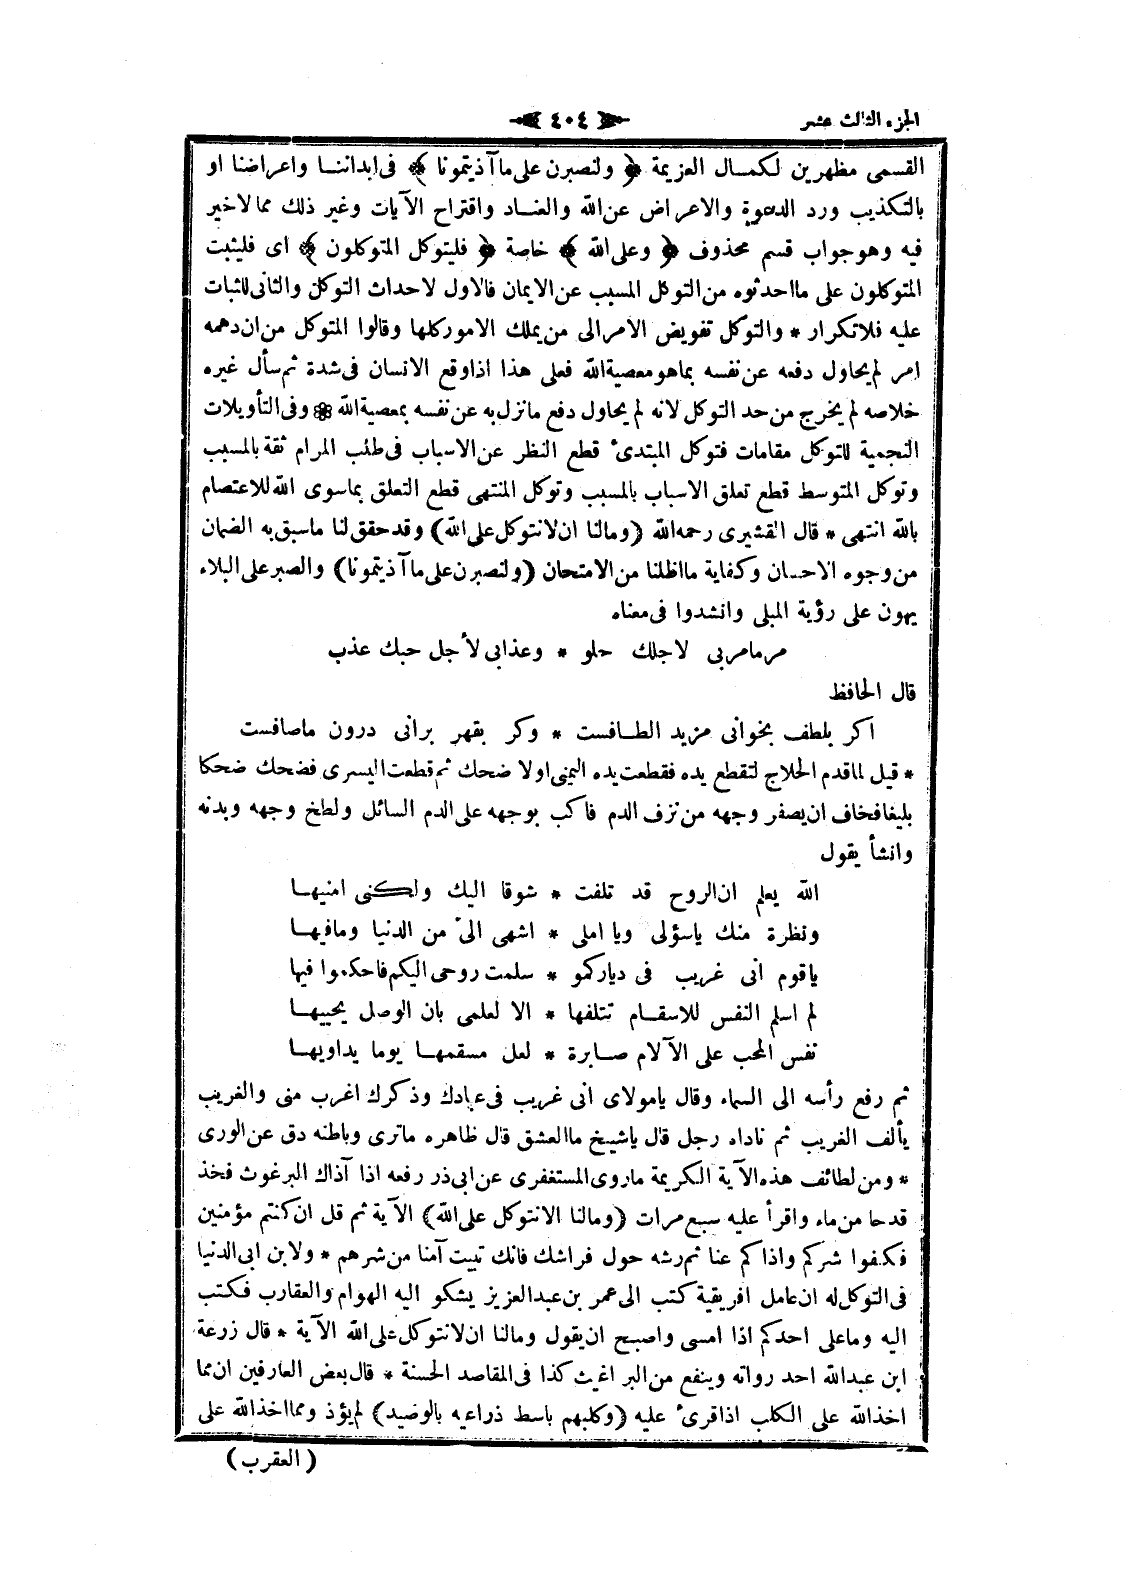 الجزء الثالث عشر
٤٠٤
القسمى مظهرين لكمال العزيمة ﴿ ولنصبرن على ما آذيتمونا ﴾ فى ابداننا واعراضنا او
بالتكذيب ورد الدعوة والاعراض عن الله والعناد واقتراح الآيات وغير ذلك مما لاخير
فيه وهو جواب قسم محذوف ﴿ وعلى الله ﴾ خاصة ﴿ فليتوكل المتوكلون ﴾ اى فليثبت
المتوكلون على ما احدثوه من التوكل المسبب عن الايمان فالاول لاحداث التوكل والثانى للثبات
عليه فلا تكرار * والتوكل تفويض الامر الى من يملك الامور كلها وقالوا المتوكل من ان دهمه
امر لم يحاول دفعه عن نفسه بما هو معصية الله فعلى هذا اذا وقع الانسان فى شدة ثم سأل غيره
خلاصه لم يخرج من حد التوكل لانه لم يحاول دفع ما نزل به عن نفسه بمعصية الله * وفى التأويلات
النجمية للتوكل مقامات فتوكل المبتدئ قطع النظر عن الاسباب فى طلب المرام ثقة بالمسبب
وتوكل المتوسط قطع تعلق الاسباب بالمسبب وتوكل المنتهى قطع التعلق بما سوى الله للاعتصام
بالله انتهى * قال القشيرى رحمه الله (وما لنا ان لا نتوكل على الله) وقد حقق لنا ما سبق به الضمان
من وجوه الاحسان وكفاية ما اظلنا من الامتحان (ولنصبرن على ما آذيتمونا) والصبر على البلاء
يهون على رؤية المبلى وانشدوا فى معناه
مر ما مر بى لاجلك حلو * وعذابى لأجل حبك عذب
قال الحافظ
اكر بلطف بخوانى مزيد الطافست * وكر بقهر برانى درون ما صافست
* قيل لما قدم الحلاج لتقطع يده فقطعت يده اليمنى اولا ضحك ثم قطعت اليسرى فضحك ضحكا
بليغا فخاف ان يصفر وجهه من نزف الدم فاكب بوجهه على الدم السائل ولطخ وجهه وبدنه
وانشأ يقول
الله يعلم ان الروح قد تلفت * شوقا اليك ولكنى امنيها
ونظرة منك يا سؤلى ويا املى * اشهى الىّ من الدنيا وما فيها
يا قوم انى غريب فى دياركمو * سلمت روحى اليكم فاحكموا فيها
لم اسلم النفس للاسقام تتلفها * الا لعلمى بان الوصل يحييها
نفس المحب على الآلام صابرة * لعل مسقمها يوما يداويها
ثم رفع رأسه الى السماء وقال يا مولاى انى غريب فى عبادك وذكرك اغرب منى والغريب
يألف الغريب ثم ناداه رجل قال يا شيخ ما العشق قال ظاهره ما ترى وباطنه دق عن الورى
* ومن لطائف هذه الآية الكريمة ما روى المستغفرى عن ابى ذر رفعه اذا آذاك البرغوث فخذ
قدحا من ماء واقرأ عليه سبع مرات (وما لنا الا نتوكل على الله) الآية ثم قل ان كنتم مؤمنين
فكفوا شركم واذاكم عنا ثم رشه حول فراشك فانك تبيت آمنا من شرهم * ولابن ابى الدنيا
فى التوكل له ان عامل افريقية كتب الى عمر بن عبد العزيز يشكو اليه الهوام والعقارب فكتب
اليه وما على احدكم اذا امسى واصبح ان يقول وما لنا ان لا نتوكل على الله الآية * قال زرعة
ابن عبد الله احد رواته وينفع من البراغيث كذا فى المقاصد الحسنة * قال بعض العارفين ان مما
اخذ الله على الكلب اذا قرئ عليه (وكلبهم باسط ذراعيه بالوصيد) لم يؤذ ومما اخذ الله على
(العقرب)